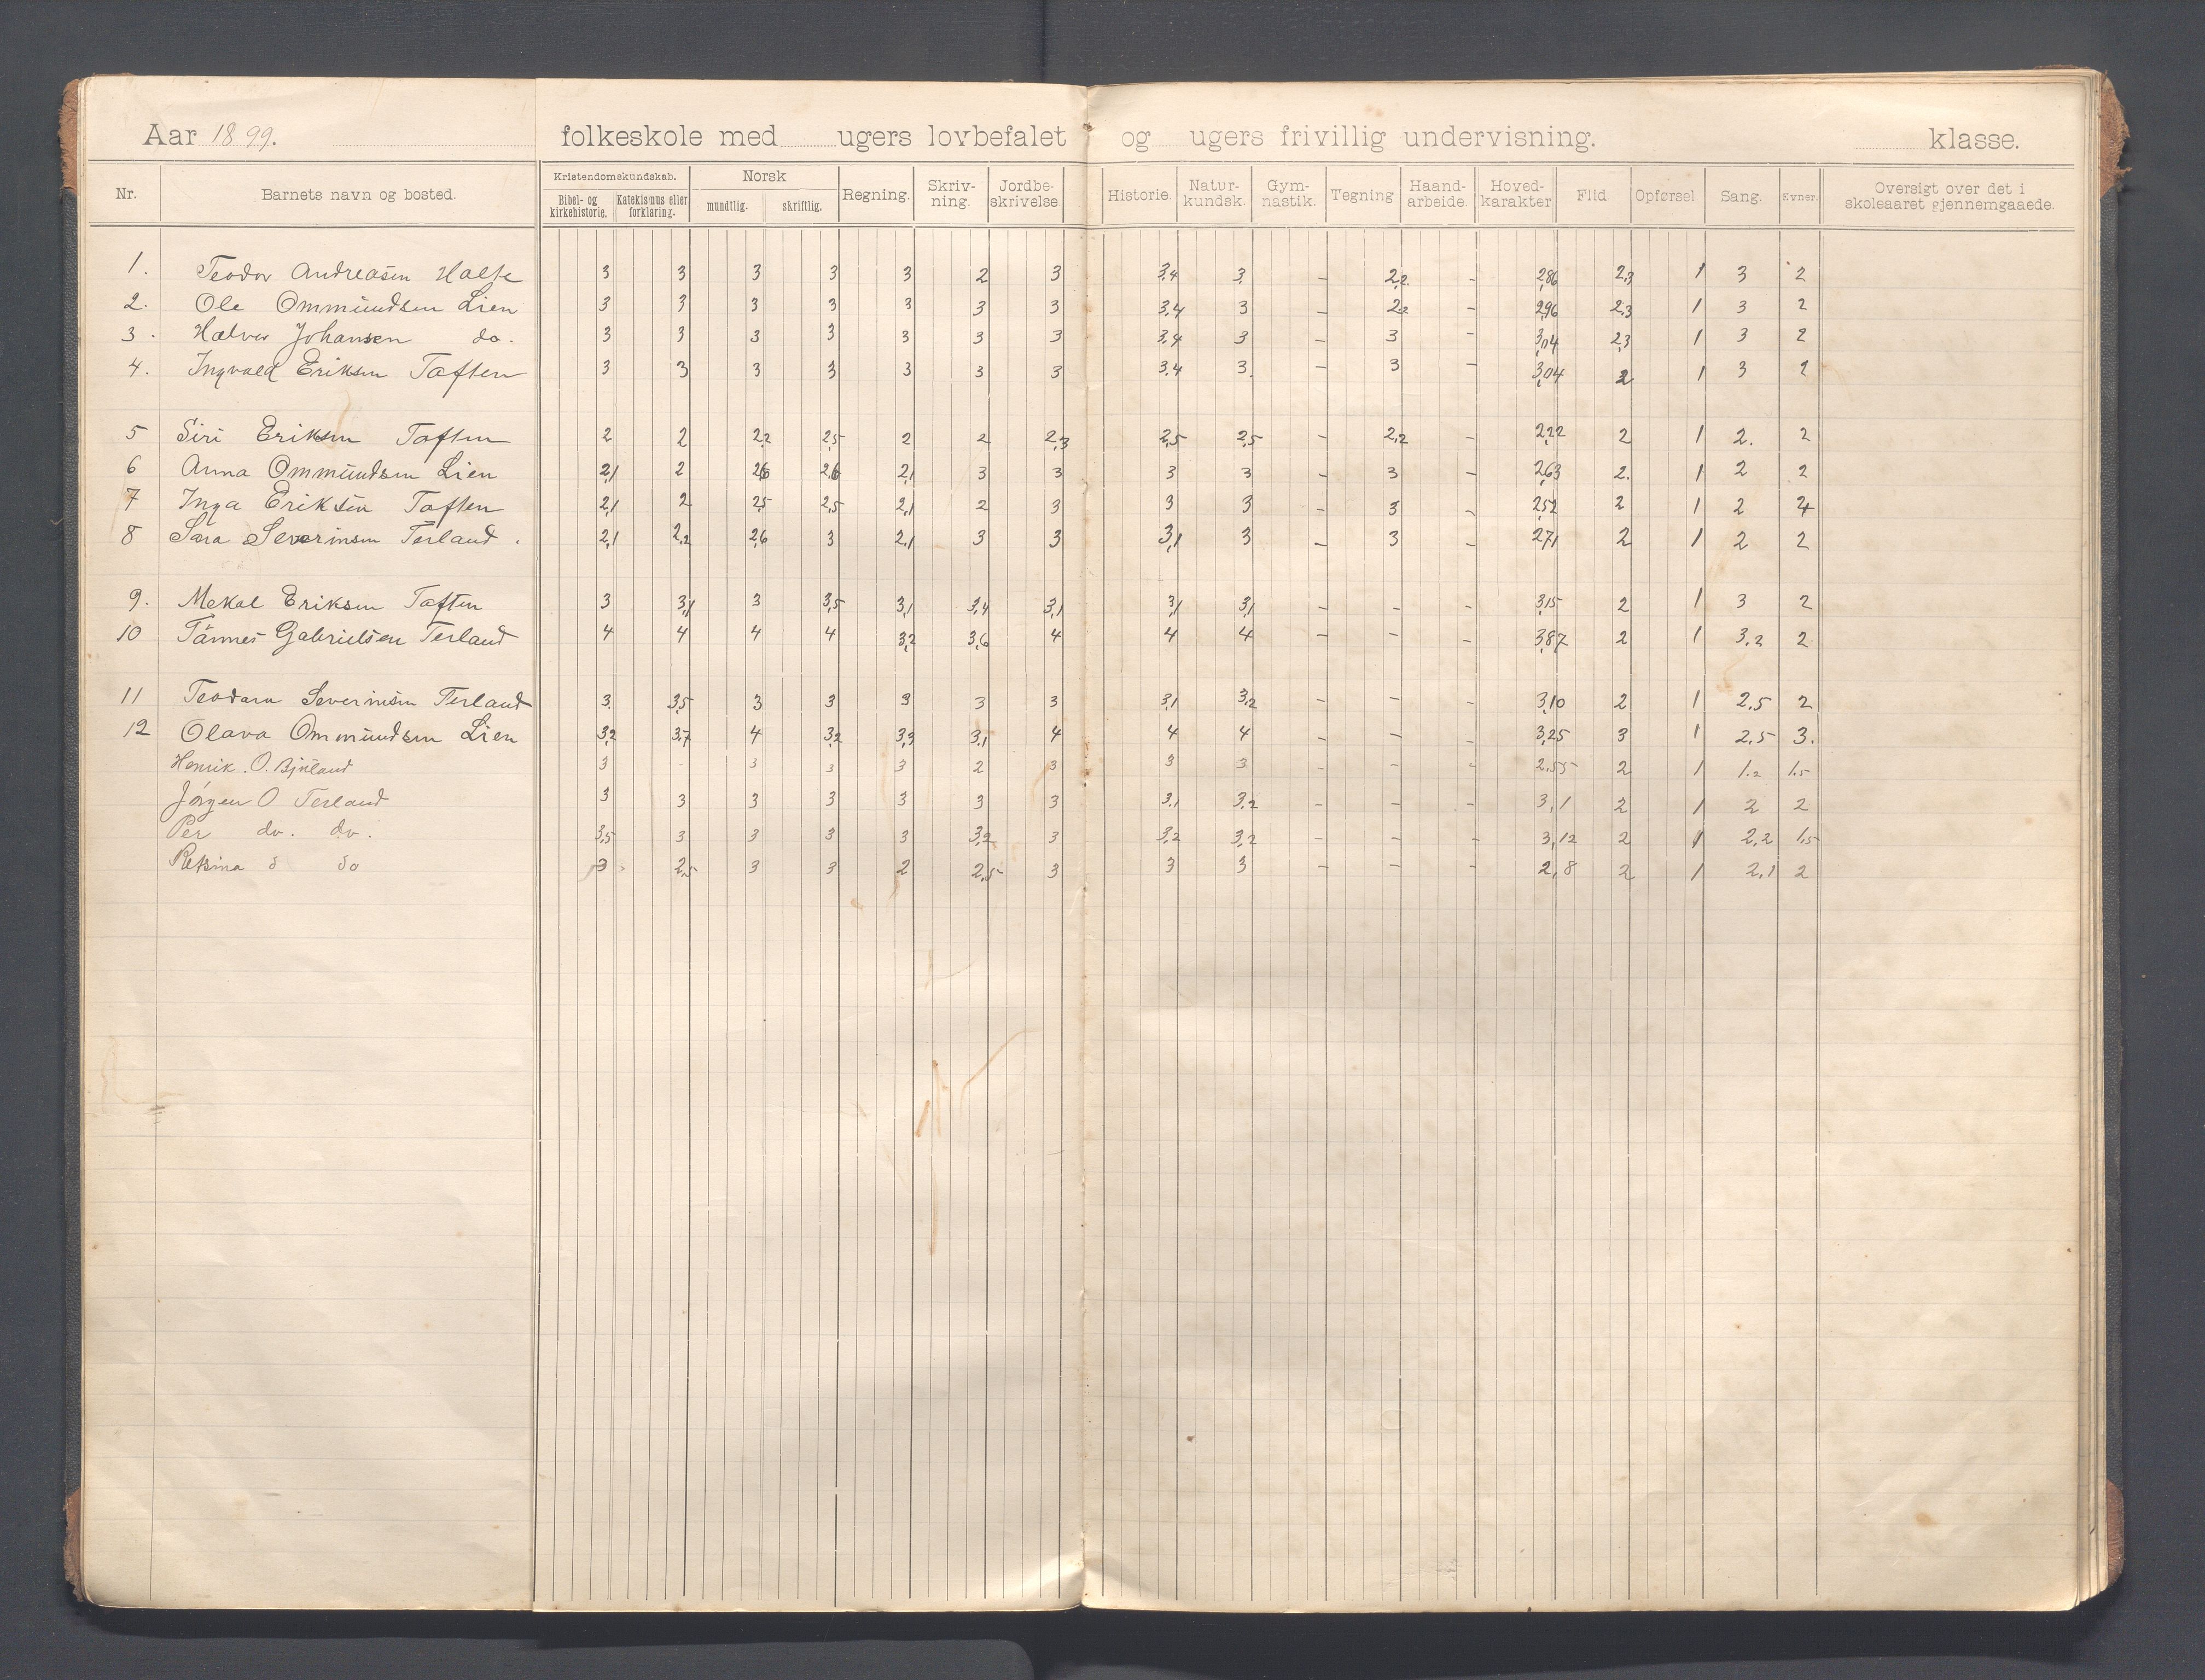 Aar 1899. folkeskole med ugers lovbefalet og ugers frivillig undervisning. klasse.
Nr. Barnets navn og bosted. Kristendomskundskab. Bibel- og kirkehistorie. Katekismus eller forklaring. Norsk mundtlig. skriftlig. Regning. Skriv-ning. Jordbe-skrivelse. Historie. Natur-kundsk. Gym-nastik. Tegning Haand-arbeide. Hoved-karakter Flid Opførsel Sang. Evner. Oversigt over det i skoleaaret gjennemgaaede.
1. Teodor Andreasen 3 3 3 3 3 2 3 3,4 3. - 2,2. - 2,86 2,3 1 3 2
2. Ole Ommundsen Lien 3 3 3 3 3 3 3 3,4 3 - 2,2 - 2,96 2,3 1 3 2
3. Halvor Johansen do. 3 3 3 3 3 3 3 3,4 3 - 3 - 3,04 2,3 1 3 2
4. Ingvald Eriksen Taften 3 3 3 3 3 3 3 3,4 3. - 3 - 3,04 2 1 3 2
5 Siri Eriksen Taften 2 2 2,2 2,5 2 2 2,3 2,5 2,5 - 2,2 - 2,22 2 1 2. 2
6 Anna Ommundsen Lien 2,1 2 2,6 2,6 2,1 3 3 3 3 - 3 - 2,63 2. 1 2 2
7 Inga Eriksen Taften 2,1 2 2,5 2,5 2,1 2 3 3 3 - 3 - 2,52 2 1 2 2
8 Sara Severinsen Terland. 2,1 2,2 2,6 3 2,1 3 3 3,1 3 - 3 - 2,71 2 1 2 2
9. Mekal Eriksen Taften 3 3,1 3 3,5 3,1 3,4 3,1 3,1 3,1 - - - 3,15 2 1 3 2
10 Tønnes Gabrielsen Terland 4 4 4 4 3,2 3,6 4 4 4 - - - 3,87 2 1 3,2 2
11 Teodara Severinsen Terland 3. 3,5 3 3 3 3 3 3,1 3,2 - - - 3,10 2 1 2,5 2
12 Olava Ommundsen Lien 3,2 3,7 4 3,2 3,3 3,1 4 4 4 - - - 3,25 3 1 2,5 3.
Henrik. O. 3 - 3 3 3 2 3 3 3 - - - 2,55 2 1 1.2 1.5
Jørgen O Terland 3 3 3 3 3 3 3 3,1 3,2 - - - 3,1 2 1 2 2
Per do. do. 3,5 3 3 3 3 3,2 3 3,2 3,2 - - - 3,12 2 1 2,2 1,5
do 3 2,5 3 3 2 2,5 3 3 3 - - - 2,8 2 1 2,1 2